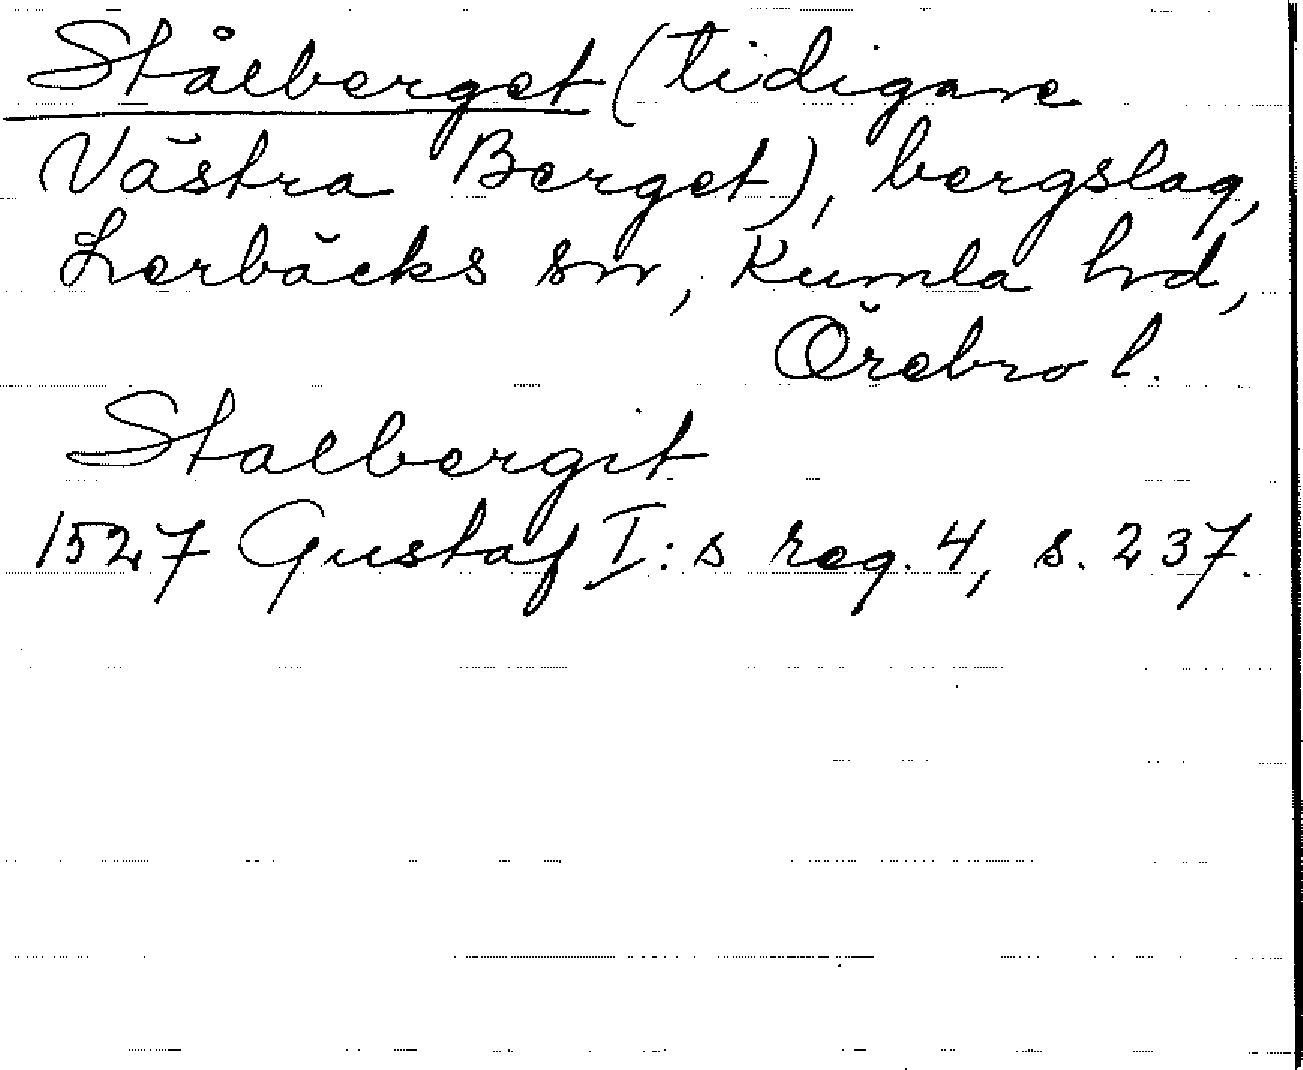 Stålberget (tidigare
Västra Berget), bergslag,
Lerbäcks sn, Kumla hd,
Örebro l.
Stalbergit
1527 Gustaf I:s reg. 4, s. 237.